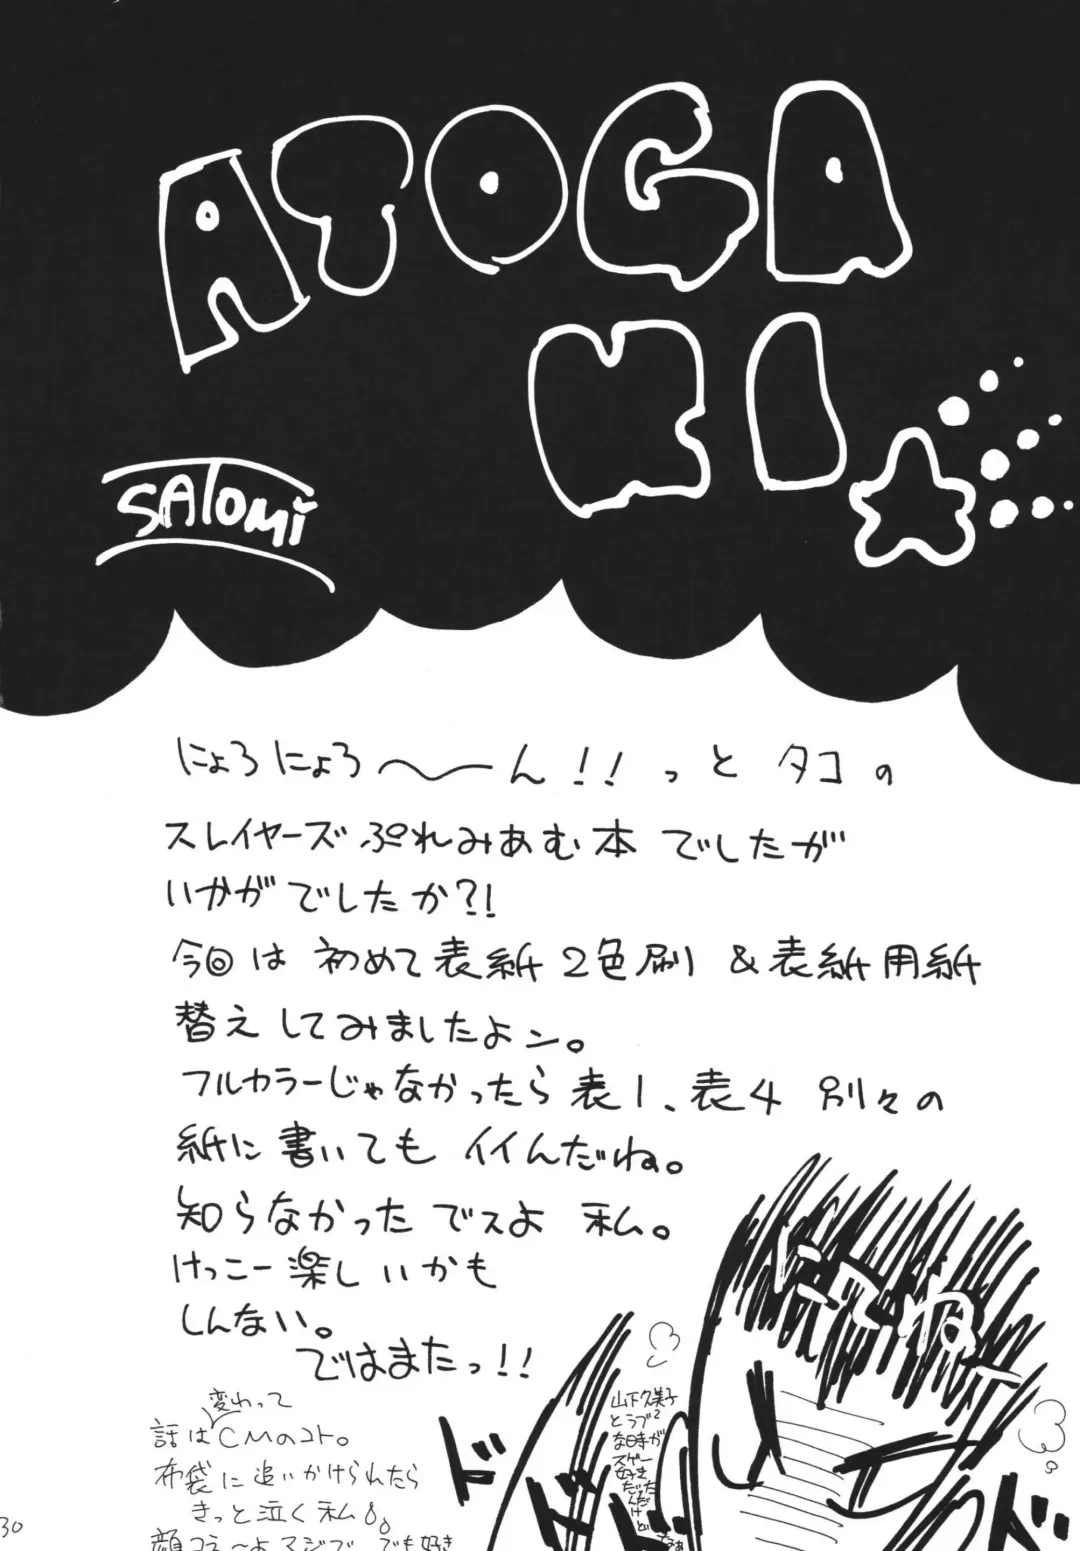 ATOGA
KI
SATOMI
にょろにょろ〜ん!! っと タコの
スレイヤーズ ぷれみあむ本 でしたが
いかがでしたか?!
今回は 初めて表紙2色刷 &表紙用紙
替えしてみましたよン。
フルカラーじゃなかったら 表1、表4 別々の
紙に書いても イイんだね。
知らなかったでスよ 私。
けっこー楽しいかも
しんない。
ではまたっ!!
変わって
話はCMのコト。
布袋に追いかけられたら
きっと泣く私
顔コエ〜よマジで でも好き
山下久美子
とラブ2
な時が
スゲー
好き
だったん
だけど
なぁ
ドドドドド
30